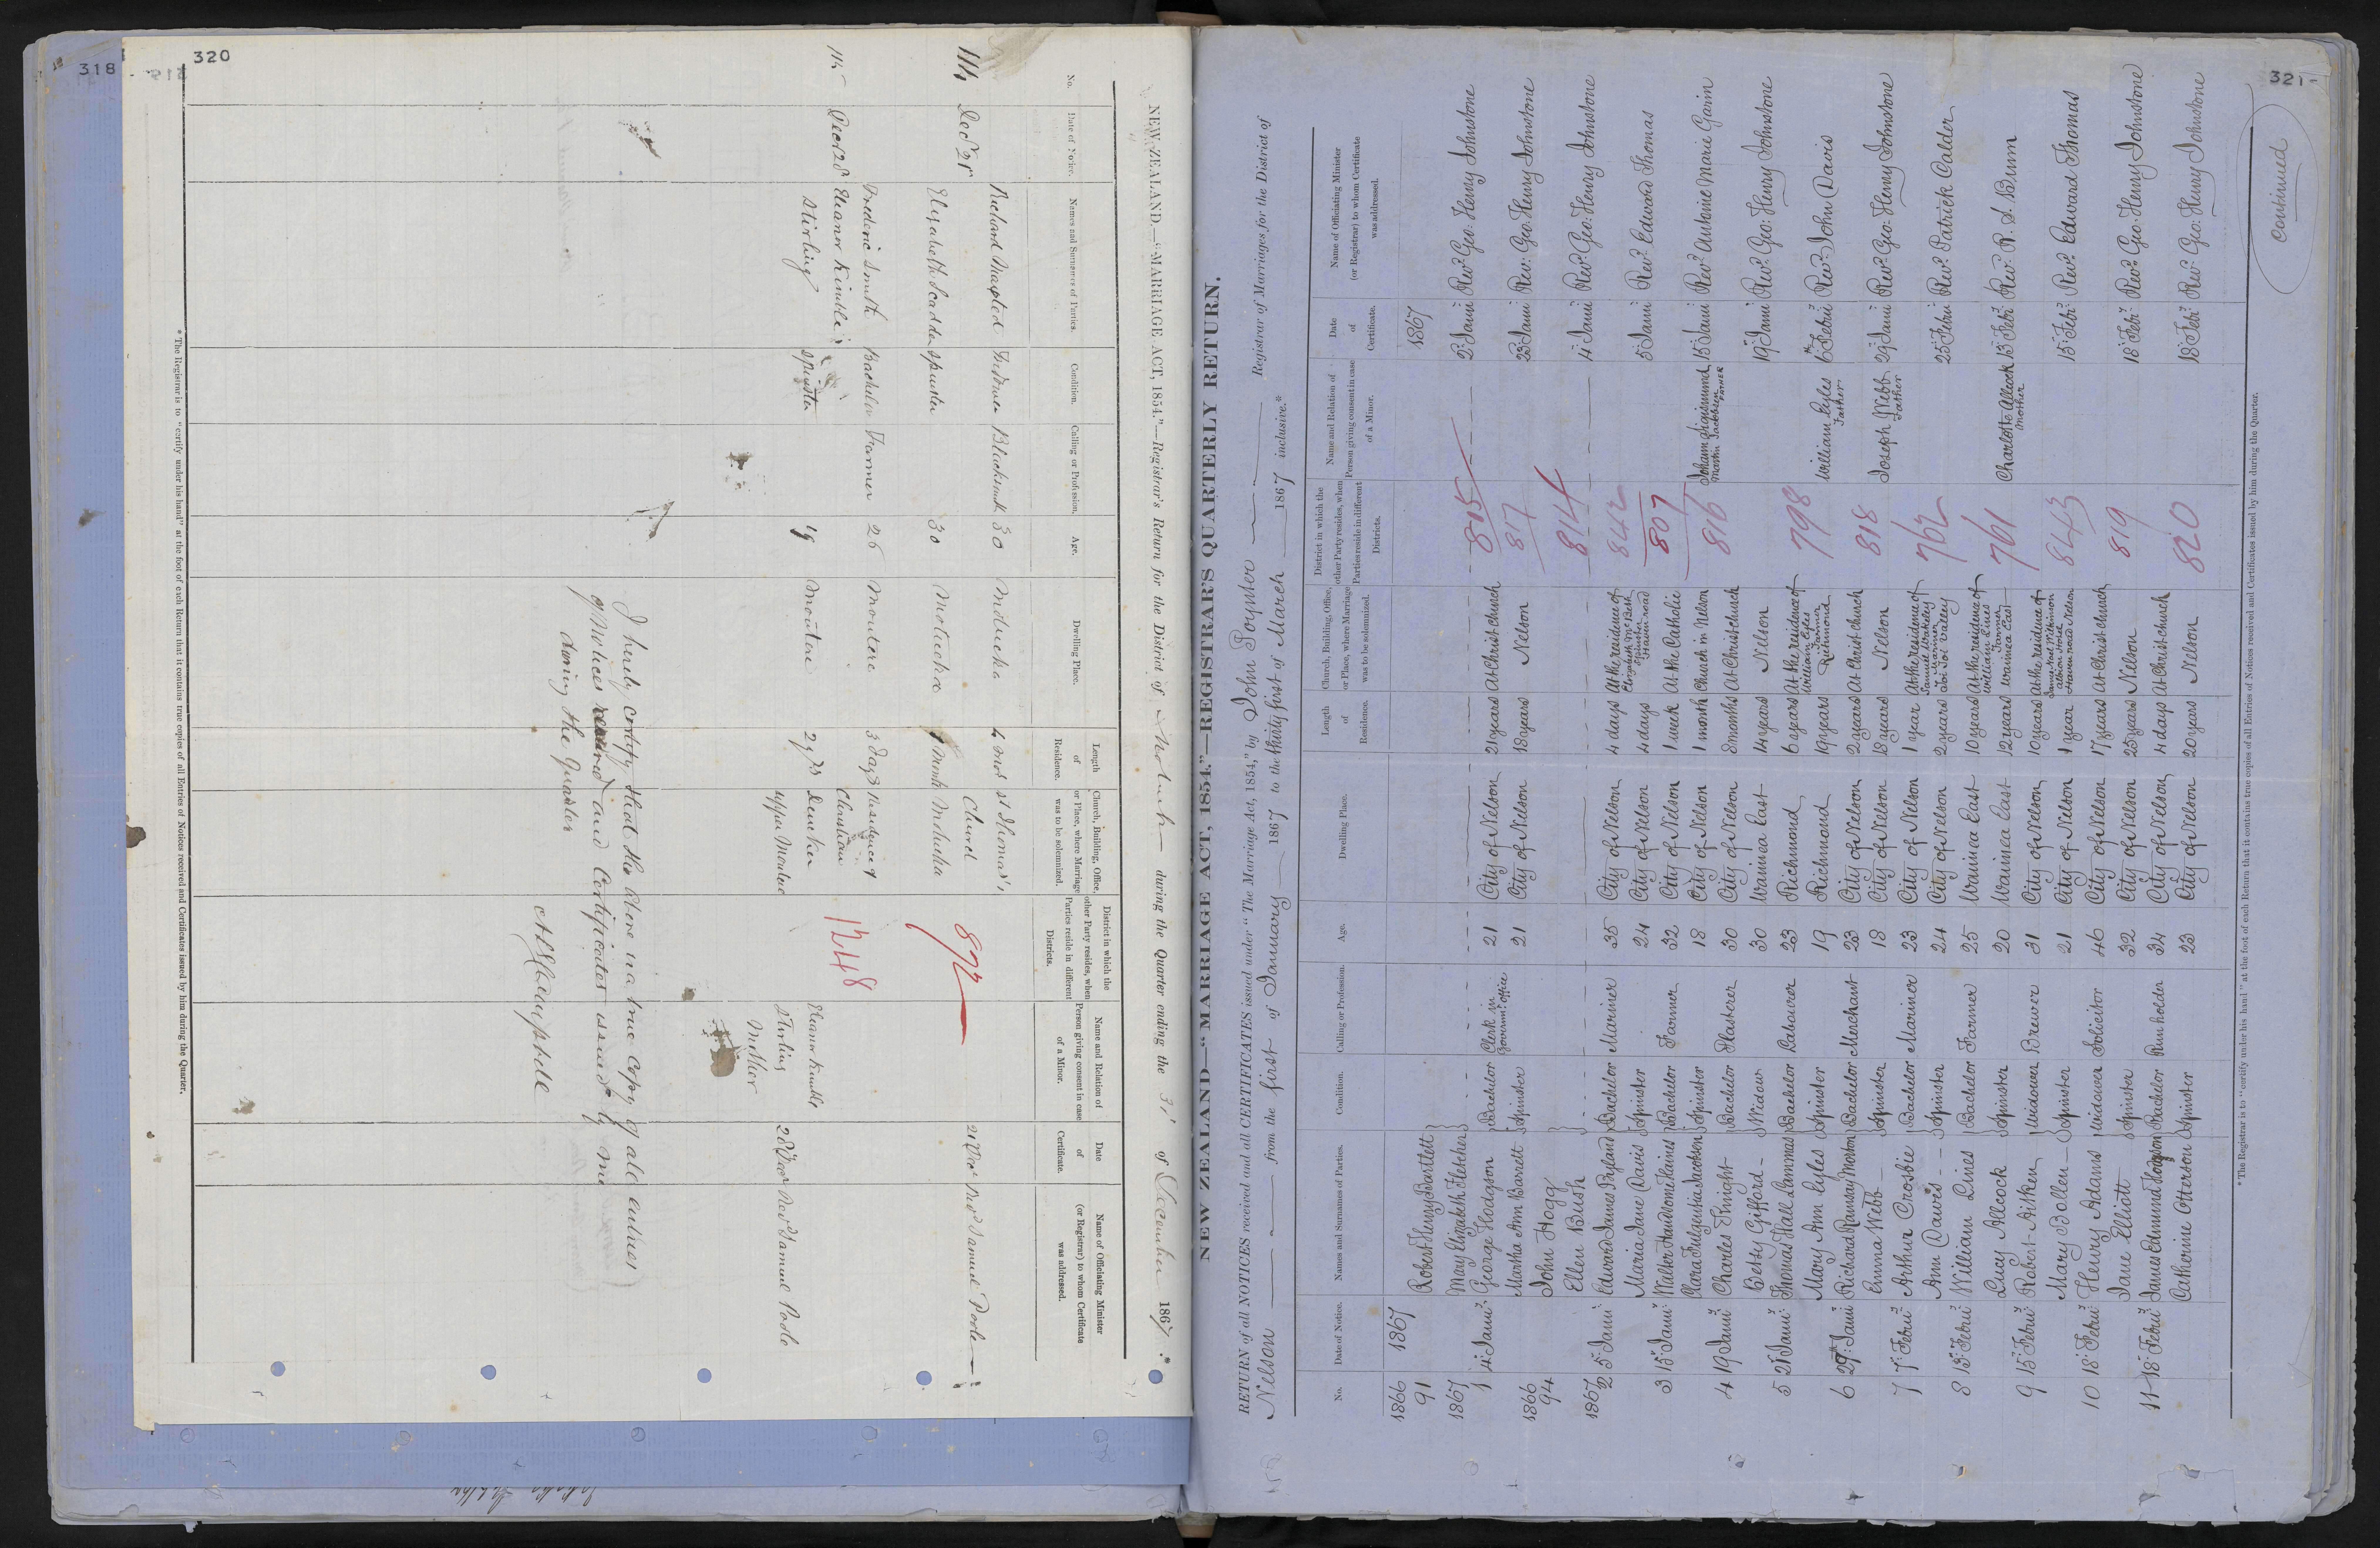 318
320
NEW ZEALAND.—"MARRIAGE ACT, 1854."—Registrar's Return for the District of Motueka during the Quarter ending the 31 of December 1867.
No. Date of Notice. Names and Surnames of Parties. Condition. Calling or Profession. Age. Dwelling Place. Length of Residence. Church, Building, Office, or Place, where Marriage was to be solemnized. District in which the other Party resides, when Parties reside in different Districts. Name and Relation of Person giving consent in case of a Minor. Date of Certificate. Name of Officiating Minister (or Registrar) to whom Certificate was addressed.
Richard Blacksmith 30 Motueka St Thomas's
114 Dec 21 Church 872 21 Dec Revd Samuel Poole
Elizabeth spinster 30 Motueka 1 Month Motueka
Frederic Smith Bachelor Farmer 26 Moutere 3 days Residence of
115 Decer 28 Eleanor Kindle 1248 Eleanor Kindle
Stirling spinster 19 Moutere 2 yrs upper Moutere Stirling Mother 28 Decr Revd Samuel Poole
I hereby certify that the above is a true Copy of all entries
of Notices received and Certificates issued by me
during the Quarter
* The Registrar is to "certify under his hand" at the foot of each Return that it contains true copies of all Entries of Notices received and Certificates issued by him during the Quarter.
321
NEW ZEALAND—"MARRIAGE ACT, 1854."—REGISTRAR'S QUARTERLY RETURN.
RETURN of all NOTICES received and all CERTIFICATES issued under "The Marriage Act, 1854," by John Poynter Registrar of Marriages for the District of
Nelson from the first of January 1867 to the thirty first of March 1867 inclusive.*
No. Date of Notice. Names and Surnames of Parties. Condition. Calling or Profession. Age. Dwelling Place. Length of Residence. Church, Building, Office, or Place, where Marriage was to be solemnized. District in which the other Party resides, when Parties reside in different Districts. Name and Relation of Person giving consent in case of a Minor. Date of Certificate. Name of Officiating Minister (or Registrar) to whom Certificate was addressed.
1866 1867 1867
91 Robert Henry Bartlett
1867 May Elizabeth Fletcher 815 2 Janu Revd Geo: Henry Johnstone
1 4 Janu George Hodgson Bachelor Clerk in Governmt office 21 City of Nelson 21 years At Christ church
Martha Ann Barett Spinster 21 City of Nelson 18 years Nelson 817 23 Janu Rev: Geo: Henry Johnstone
1866
94 John Hogg
Ellen Bush 814 4 Janu Revd Geo: Henry Johnstone
1867
2 5 Janu Edward James Bryland Bachelor Mariner 35 City of Nelson 4 days At the residence of Elizabeth McBeth
Maria Jane Davis Spinster 24 City of Nelson 4 days Spinster Haven road 842 5 Janu Revd Edward Thomas
807
3 15 Janu Bachelor Farmer 32 City of Nelson 1 week At the Catholic
Clara Fulgentia Jacobsen Spinster 18 City of Nelson 1 month Church in Nelson 816 Johann Sigismund Martin Jacobsen Father 15 Janu Revd Antonie Marie Garin
4 19 Janu Charles Knight Bachelor Plasterer 30 City of Nelson 8 months At Christ church
Betsy Gifford Widow 30 Waimea East 14 years Nelson 19 Janu Revd Geo: Henry Johnstone
5 21 Janu Thomas Hall Lammas Bachelor Labourer 23 Richmond 6 years At the residence of William Eyles
Mary Ann Eyles Spinster 19 Richmond 19 years Farmer Richmond 798 William Eyles Father 6 Febru Revd John Davis
6 29 Janu Richard Ramsay Bachelor Merchant 23 City of Nelson 2 years At Christ church
Emma Webb Spinster 18 City of Nelson 18 years Nelson 818 Joseph Webb Father 29 Janu Revd Geo: Henry Johnstone
7 7 Febru Arthur Crosbie Bachelor Mariner 23 City of Nelson 1 year At the residence of
Ann Davis Spinster 24 City of Nelson 2 years Toi Toi Valley 762 25 Febru Revd Patrick Calder
8 13 Febru William Lines Bachelor Farmer 25 Waimea East 10 years At the residence of William Lines
Lucy Allcock Spinster 20 Waimea East 12 years Farmer Waimea East 761 Charlotte Allcock Mother 13 Febr Revd R. S. Bunn
9 15 Febru Robert Aitken Widower Brewer 31 City of Nelson 10 years At the residence of
Mary Bollen Spinster 21 City of Nelson 1 year Haven road Nelson 843 15 Febr Revd Edward Thomas
10 18 Febru Henry Adams Widower Solicitor 46 City of Nelson 17 years At Christ church
Jane Elliott Spinster 32 City of Nelson 25 years Nelson 819 18 Febr Revd Geo: Henry Johnstone
11 18 Febru James Edmund Hodgson Bachelor Run holder 34 City of Nelson 4 days At Christ church
Catherine Otterson Spinster 23 City of Nelson 20 years Nelson 820 18 Febr Revd Geo: Henry Johnstone
* The Registrar is to "certify under his hand" at the foot of each Return that it contains true copies of all Entries of Notices received and Certificates issued by him during the Quarter.
Continued